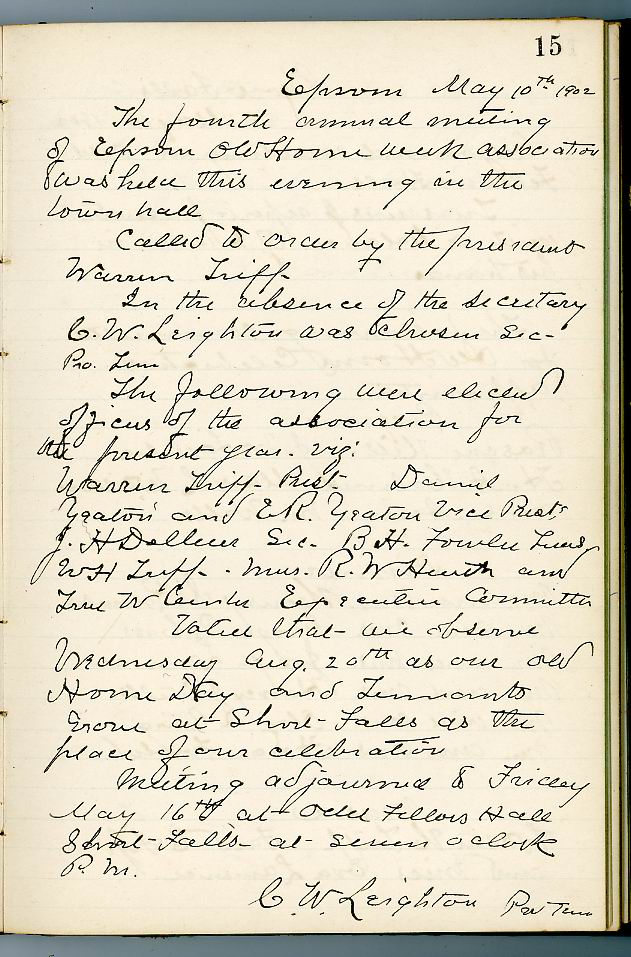 15
Epsom May 10th 1902
The fourth annual meeting
of Epsom Old Home week association
was held this evening in the
town hall
Called to order by the president
Warren Tripp
In the absence of the secretary
C. W. Leighton was chosen Sec-
Pro. Tem
The following were elected
officers of the association for
the present year. viz:
Warren Tripp- Prest- Daniel
Yeaton and E.R. Yeaton Vice Prests
J. H Dolbeer Sec. B. H. Fowler Treas
W H Tripp. Mrs. R. W and
True W Executive Committee
Voted that we observe
Wednesday Aug. 20th as our old
Home Day and Tennants
Grove at Short-Falls as the
place of our celebration
Meeting adjourned to Friday
May 16th at Odd Fellows Hall
Short-Falls- at seven o clock
P. M.
C. W. Leighton Pro Tem